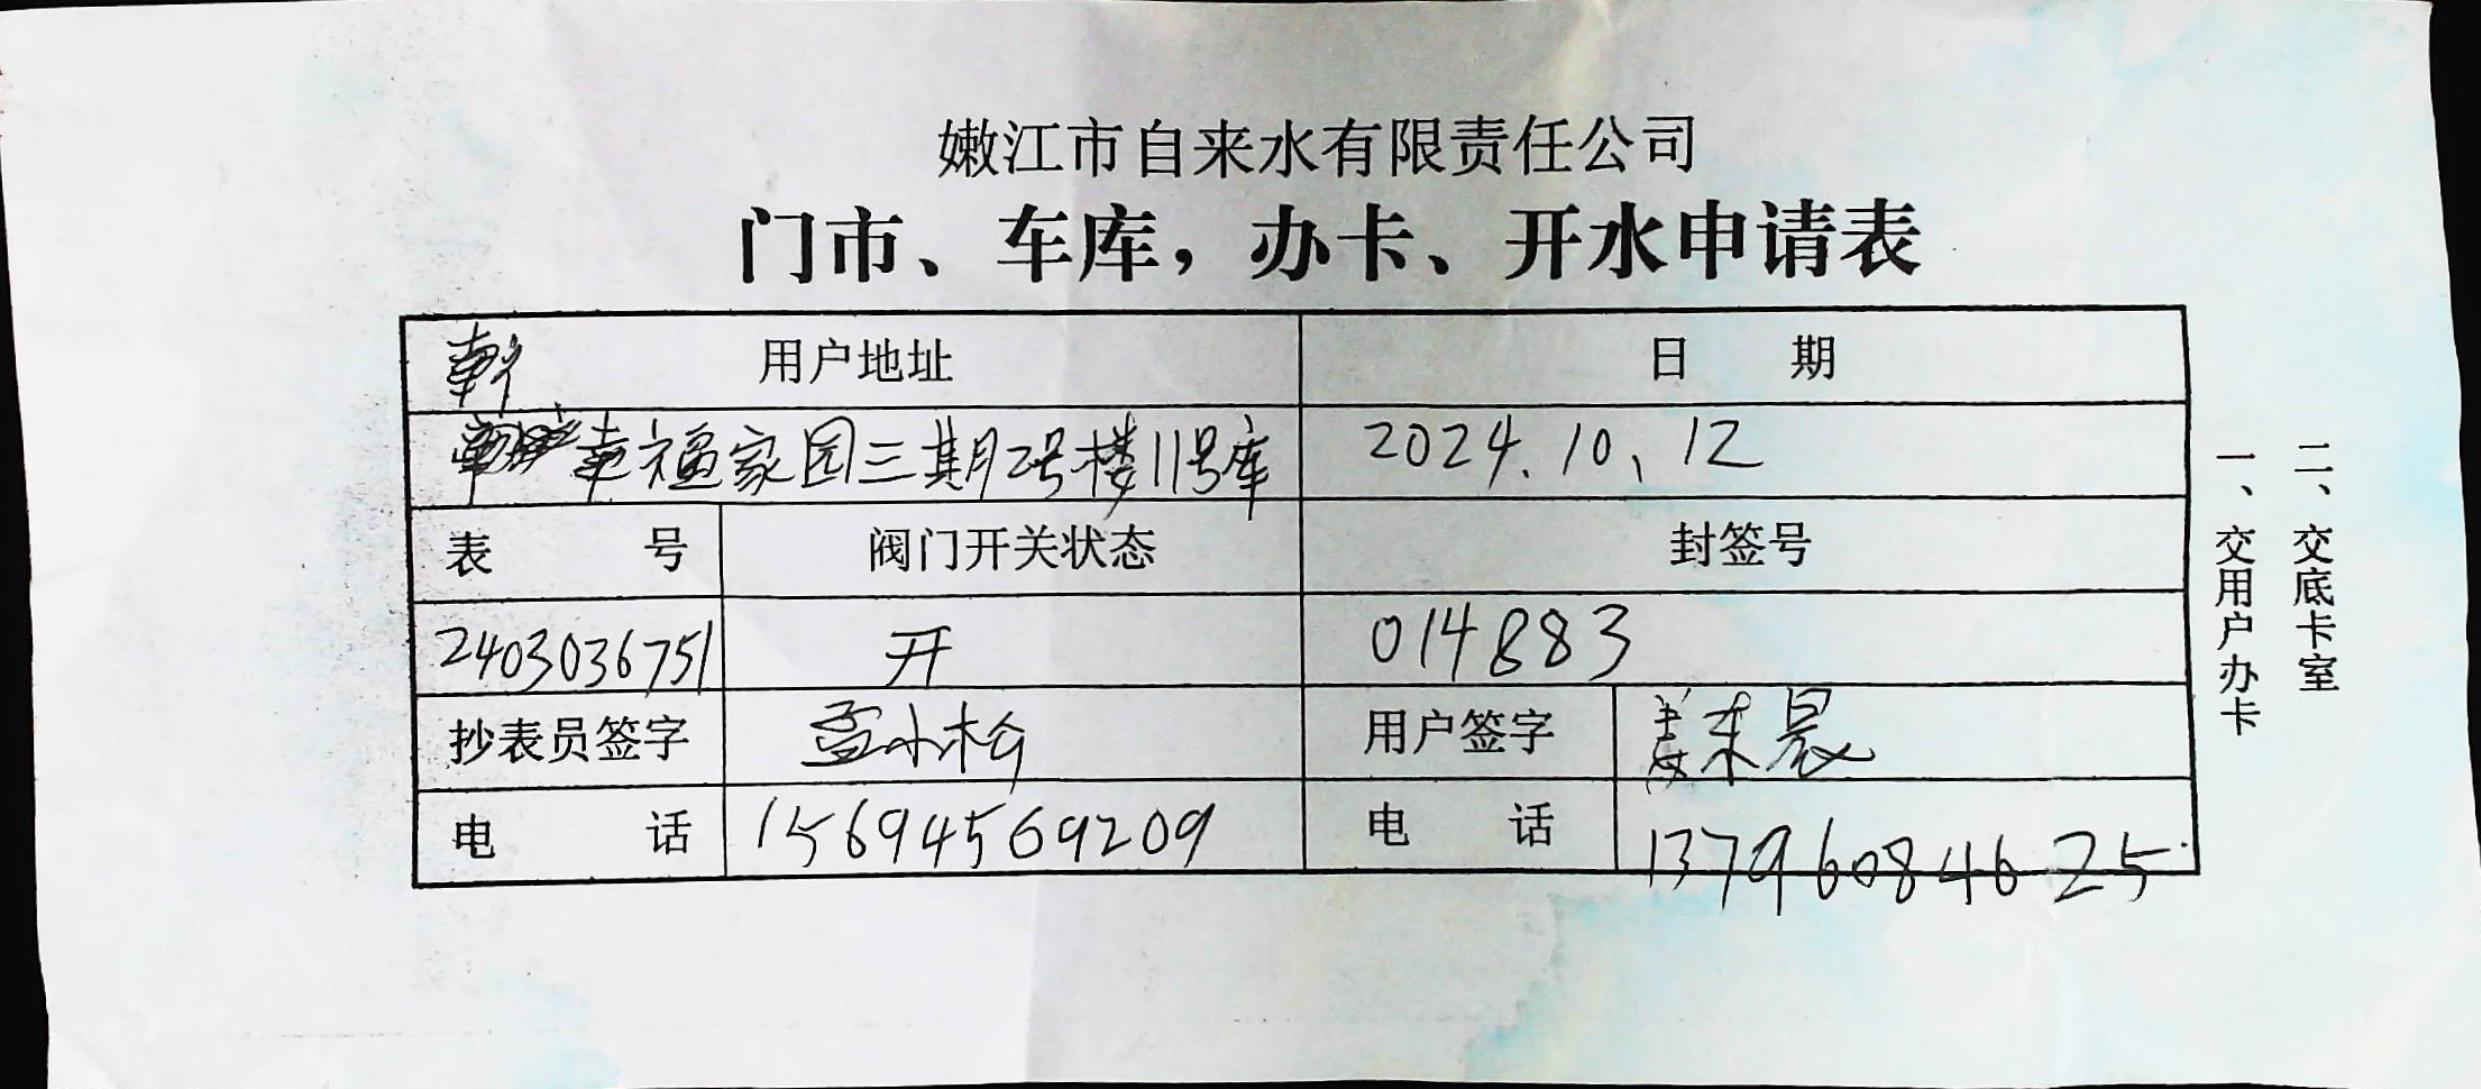 嫩江市自来水有限责任公司
门市、车库，办卡、开水申请表
用户地址 日 期
幸福家园三期2号楼11号库 2024.10、12
表 号 阀门开关状态 封签号
2403036751 开 014883
抄表员签字 孟小松 用户签字 姜来晨
电 话 15694569209 电 话 13796084625
一、交用户办卡
二、交底卡室